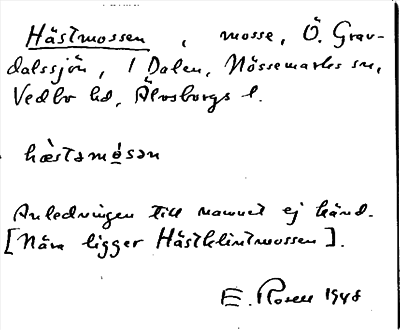 Hästmossen, mosse, Ö. Grav-
dalssjön, I Dalen, Nössemarks sn,
Vedbo hd, Älvsborgs l.
hæ̀stəm
Anledningen till namnet ej känd.
[Nära ligger Hästklintmossen].
E. Rosell 1948